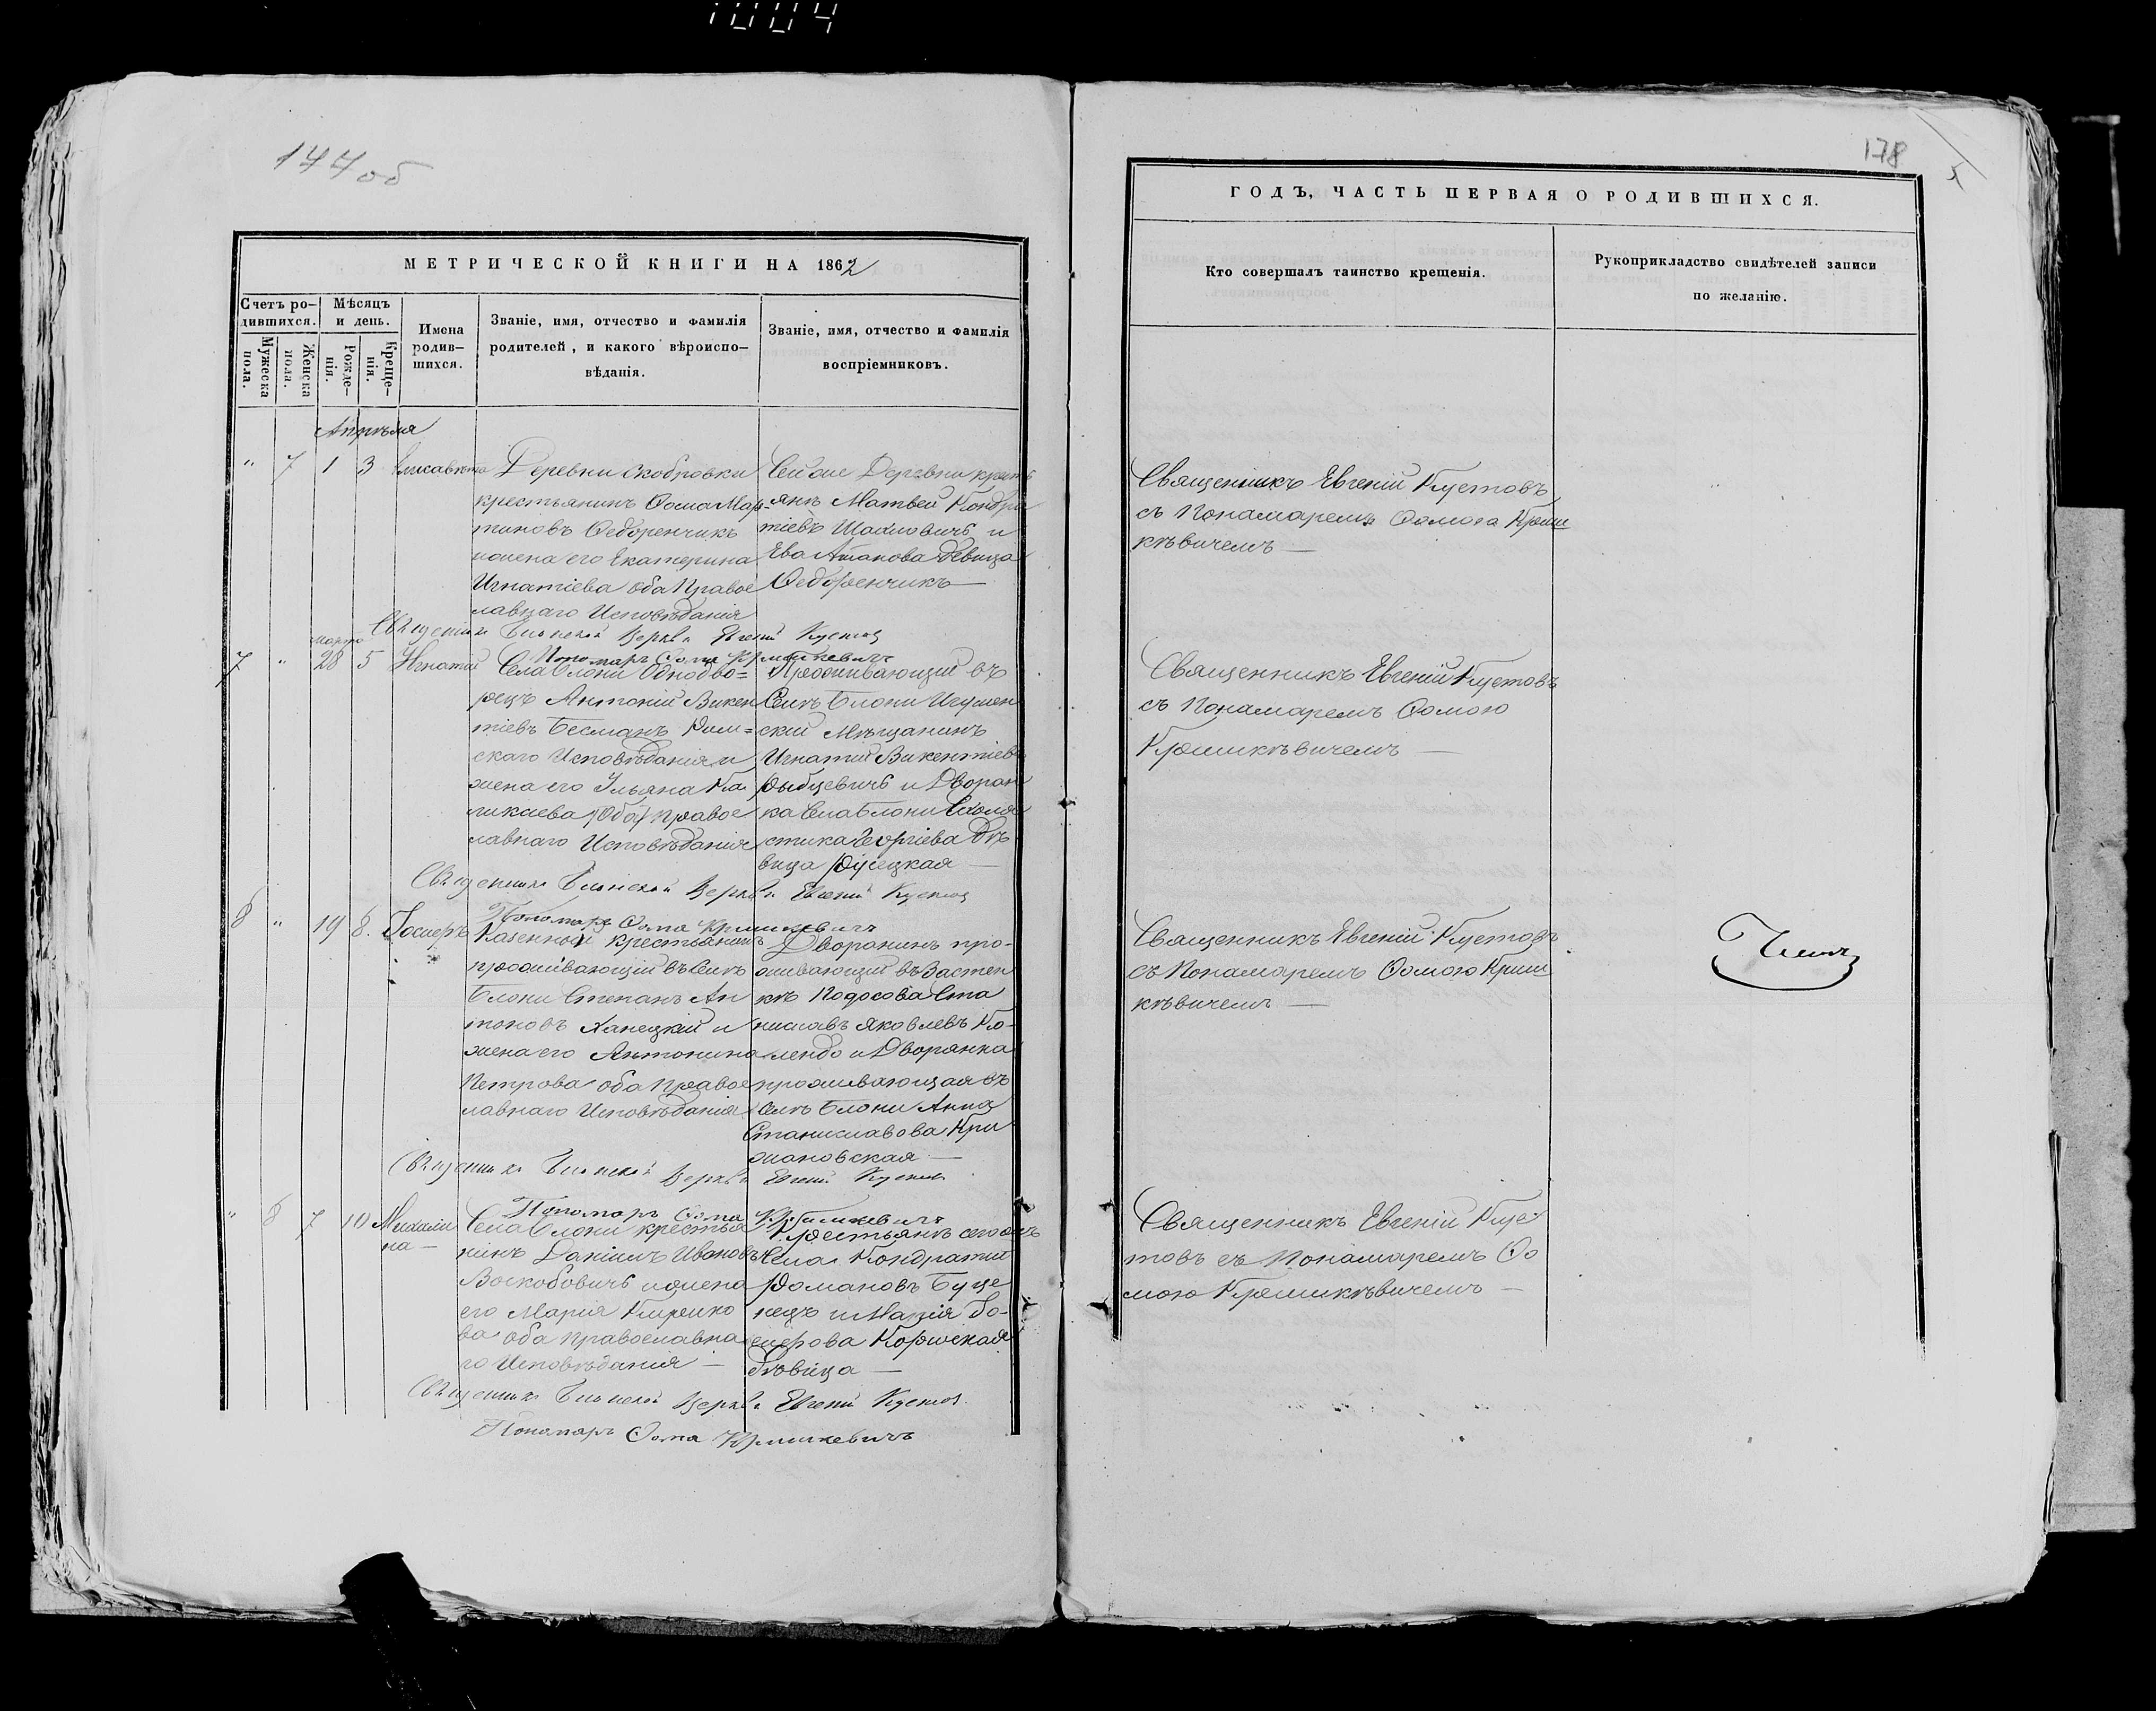 1004
177 об
МЕТРИЧЕСКОЙ КНИГИ НА 1862
Счетъ родившихся.
Мѣсяцъ и день.
Мужеска пола.
Женска пола.
Рожденія.
Крещенія.
Имена родив-
шихся.
Званіе, имя, отчество и фамилія
родителей, и какого вѣроиспо-
вѣданія.
Званіе, имя, отчество и фамилія
воспріемниковъ.
Апрѣля
" 7 1 3 Елисавѣта
Деревни Скобровки
крестьянинъ Ѳома Мар-
тиновъ Ѳедоренчикъ
и жена его Екатерина
Игнатіева оба Правос
лавнаго Исповѣданія
Сей же Деревни крест
янъ Матвей Кондра
тіевъ и
Ева девица
Ѳедоренчикъ
Священникъ Блонской Церкви Евгеній Кустов
Пономарь Ѳома Кршикевичъ
марта
7 " 28 5 Игнатій
Села Блони Однодво=
рецъ Антоній Викен
тіевъ Бесманъ Рим=
скаго Исповѣданія и
жена его Ульяна Ка
Правос
лавнаго Исповѣданія
Проживающій въ
Селѣ Блони Игумен
скій Мѣщанинъ
Игнатій Викентіевъ
Рыбцевичъ и Дворян
ка Села Блони Схола
стика Георгіева Дѣ
вица Русецкая
Священникъ Блонской Церкви Евгеній Кустов
Пономарь Ѳома Кршикевичъ
8 " 19 8. Іосифъ
Казенной крестьянинъ
проживающій въ Селѣ
Блони Степанъ Ан
тоновъ Ханецкій и
жена его Антонина
Петрова оба Правос
лавнаго Исповѣданія
Дворянинъ про-
живающій въ Застен
кѣ Подосова Ста
ниславъ Яковлевъ Ко-
лендо и Дворянка
проживающая въ
Селѣ Блони Анна
Станиславова Кри
жановская
Священникъ Блонской Церкви Евгеній Кустов
Пономарь Ѳома Кршикевичъ
" 8 7 10 Михали
на
Села Блони крестья
нинъ Даніилъ Ивановъ
Воскобовичъ и жена
его Марія Кирико
ва оба Православна
го Исповѣданія
Крестьянъ сего жъ
Села Кондратій
Романовъ Буце
нецъ и Марія
Коржская
дѣвица
Священникъ Блонской Церкви Евгеній Кустов
Пономарь Ѳома Кршикевичъ
178
ГОДЪ, ЧАСТЬ ПЕРВАЯ О РОДИВШИХСЯ.
Кто совершалъ таинство крещенія.
Рукоприкладство свидѣтелей записи
по желанію.
Священникъ Евгеній Кустовъ
съ Понамаремъ Ѳомою Крши
кѣвичемъ
Священникъ Евгеній Кустовъ
съ Понамаремъ Ѳомою
Кршикѣвичемъ
Священникъ Евгеній Кустовъ
съ Понамаремъ Ѳомою Крши
кѣвичемъ
Священникъ Евгеній Кус
товъ съ Понамаремъ Ѳо
мою Кршикѣвичемъ